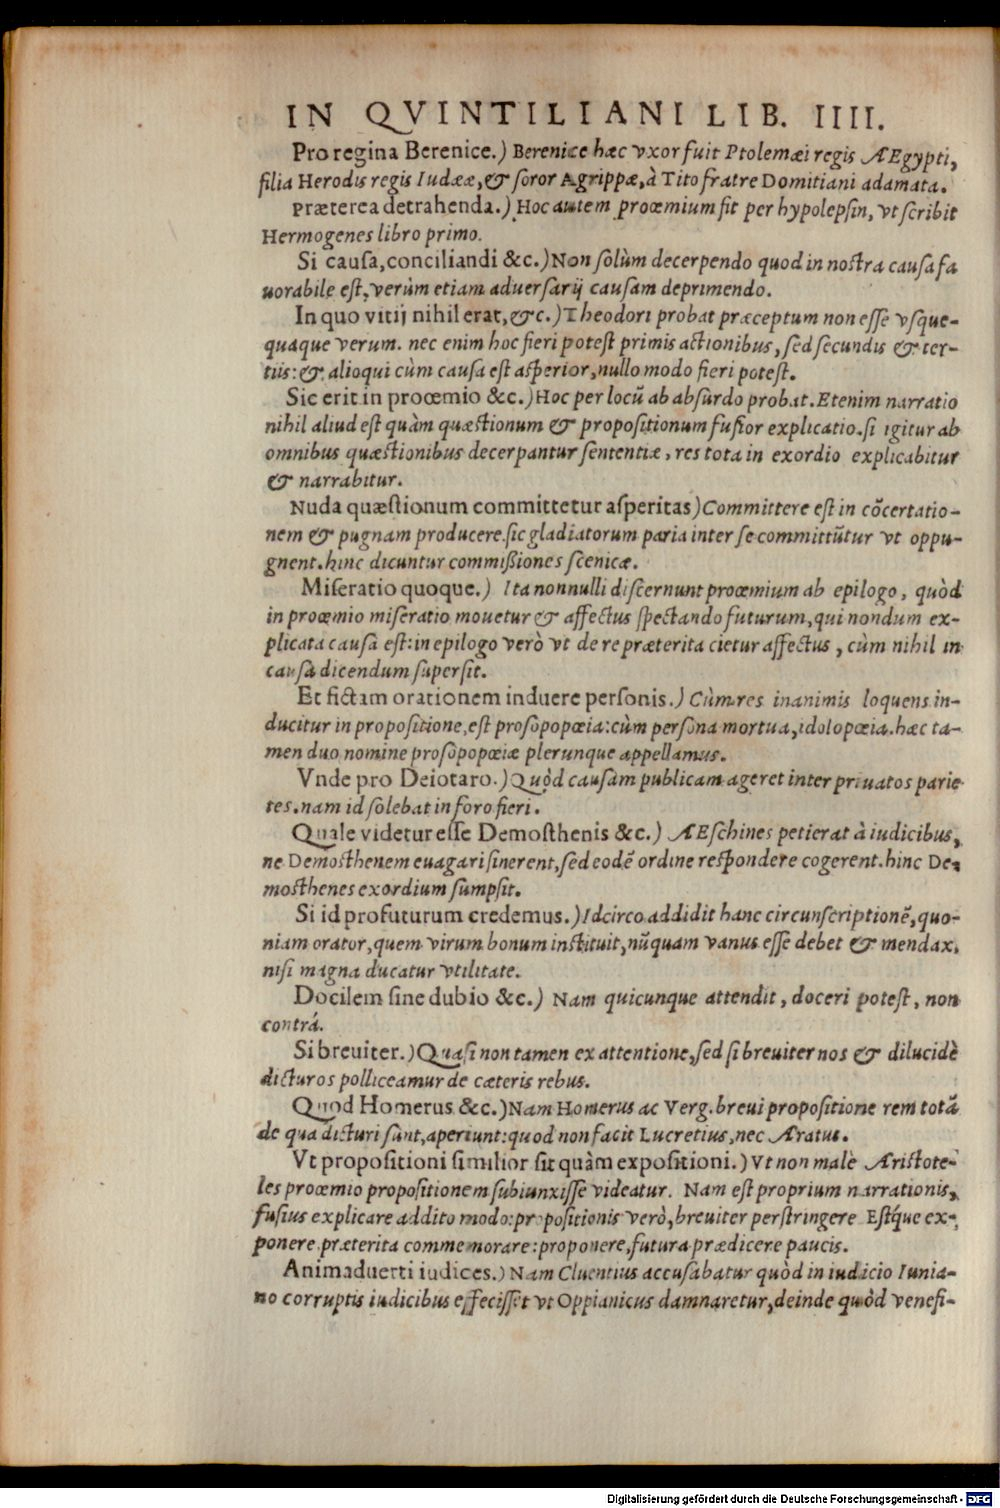 IN QVINTILIANI LIB. IIII.
Pro regina Berenice.) Berenice hæc vxor fuit Ptolemæi regis ÆEgypti,
filia Herodis regis Iudææ, & soror Agrippæ, à Tito fratre Domitiani adamata.
Præterea detrahenda.) Hoc autem proœmium fit per hypolepsin, vt scribit
Hermogenes libro primo.
Si causa, conciliandi &c.) Non solùm decerpendo quod in nostra causa fa
uorabile est, verùm etiam aduersarij causam deprimendo.
In quo vitij nihil erat, &c.) Theodori probat præceptum non esse vsque-
quaque verum. nec enim hoc fieri potest primis actionibus, sed secundis & ter-
tiis: & alioqui cùm causa est asperior, nullo modo fieri potest.
Sic erit in proœmio &c.) Hoc per locũ ab absurdo probat. Etenim narratio
nihil aliud est quàm quæstionum & propositionum fusior explicatio. si igitur ab
omnibus quæstionibus decerpantur sententiæ, res tota in exordio explicabitur
& narrabitur.
Nuda quæstionum committetur asperitas) Committere est in cõcertatio-
nem & pugnam producere. sic gladiatorum paria inter se committũtur vt oppu-
gnent. hinc dicuntur commißiones scenicæ.
Miseratio quoque.) Ita nonnulli discernunt proœmium ab epilogo, quòd
in proœmio miseratio mouetur & affectus spectando futurum, qui nondum ex-
plicata causa est: in epilogo verò vt de re præterita cietur affectus, cùm nihil in
causa dicendum supersit.
Et fictam orationem induere personis.) Cùm res inanimis loquens in-
ducitur in propositione, est prosopopœia: cùm persona mortua, idolopœia. hæc ta-
men duo nomine prosopopœiæ plerunque appellamus.
Vnde pro Deiotaro.) Quòd causam publicam ageret inter priuatos parie
tes. nam id solebat in foro fieri.
Quale videtur esse Demosthenis &c.) ÆEschines petierat à iudicibus,
ne Demosthenem euagari sinerent, sed eodẽ ordine respondere cogerent. hinc De-
mosthenes exordium sumpsit.
Si id profuturum credemus.) Idcirco addidit hanc circunscriptionẽ, quo-
niam orator, quem virum bonum instituit, nũquam vanus esse debet & mendax,
nisi magna ducatur vtilitate.
Docilem sine dubio &c.) Nam quicunque attendit, doceri potest, non
contrá.
Si breuiter.) Quasi non tamen ex attentione, sed si breuiter nos & dilucidè
dicturos polliceamur de cæteris rebus.
Quod Homerus &c.) Nam Homerus ac Verg. breui propositione rem totã
de qua dicturi sunt, aperiunt: quod non facit Lucretius, nec Aratus.
Vt propositioni similior sit quàm expositioni.) Vt non malè Aristote-
les proœmio propositionem subiunxisse videatur. Nam est proprium narrationis,
fusius explicare addito modo: propositionis verò, breuiter perstringere Estq́ue ex-
ponere præterita commemorare: proponere, futura prædicere paucis.
Animaduerti iudices.) Nam Cluentius accusabatur quòd in iudicio Iunia-
no corruptis iudicibus effecisset vt Oppianicus damnaretur, deinde quòd venefi-
Digitalisierung gefördert durch die Deutsche Forschungsgemeinschaft - DFG